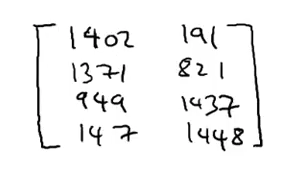 1402 191
1371 821
949 1437
147 1448